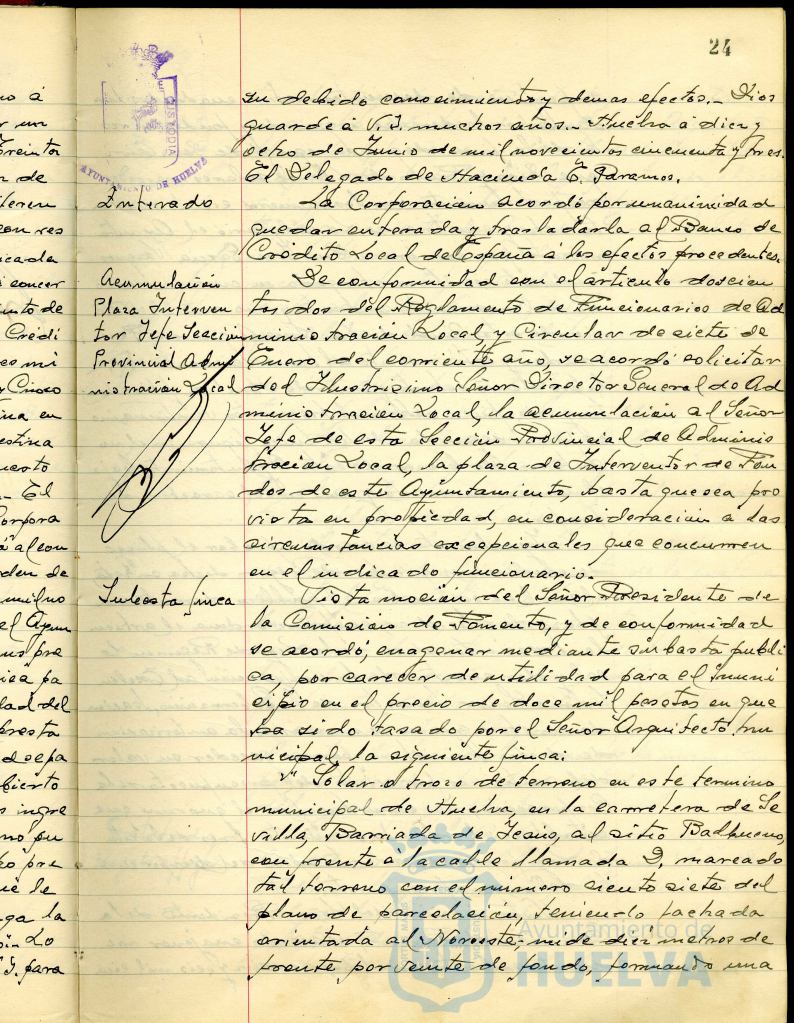 24
CUSTODIA
AYUNTAMIENTO DE HUELVA
su debido conocimiento y demas efectos.- Dios
guarde á V.I. muchos años.- Huelva á diez y
ocho de Junio de mil novecientos cincuenta y tres.
El Delegado de Hacienda E. Paramos.
Enterado
La Corporación acordó por unanimidad
quedar enterada y trasladarla al Banco de
Crédito Local de España á los efectos procedentes.
Acumulación
Plaza Interven
tor Jefe Sección
Provincial Admi
nistración Local
De conformidad con el artículo doscien
tos dos del Reglamento de Funcionarios de Ad
ministración Local, y Circular de siete de
Enero del corriente año, se acordó solicitar
del Ilustrisimo Señor Director General de Ad
ministración Local, la acumulación al Señor
Jefe de esta Sección Provincial de Adminis
tración Local, la plaza de Interventor de Fon
dos de este Ayuntamiento, hasta que sea pro
vista en propiedad, en consideración a las
circunstancias excepcionales que concurren
en el indicado funcionario.
Subasta finca
Vista moción del Señor Presidente de
la Comisión de Fomento, y de conformidad
se acordó, enagenar mediante subasta públi
ca, por carecer de utilidad para el muni
cipio en el precio de doce mil pesetas en que
ha sido tasado por el Señor Arquitecto mu
nicipal, la siguiente finca:
"Solar o trozo de terreno en este termino
municipal de Huelva, en la carretera de Se
villa, Barriada de Jesús, al sitio Balbueno,
con frente á la calle llamada D, marcado
tal terreno con el número ciento siete del
plano de parcelación, teniendo fachada
orientada al Noroeste; mide diez metros de
frente por veinte de fondo, formando una
no á
r un
n de
con res
cada
concer
nto de
Credi
es mi
Cinco
na en
uesto
. El
orpora
á al con
den de
mil no
el Ayun
pre
pa
dad del
presta
bierto
ingre
pre
ue le
ga la
Lo
I. para
Ayuntamiento de
HUELVA